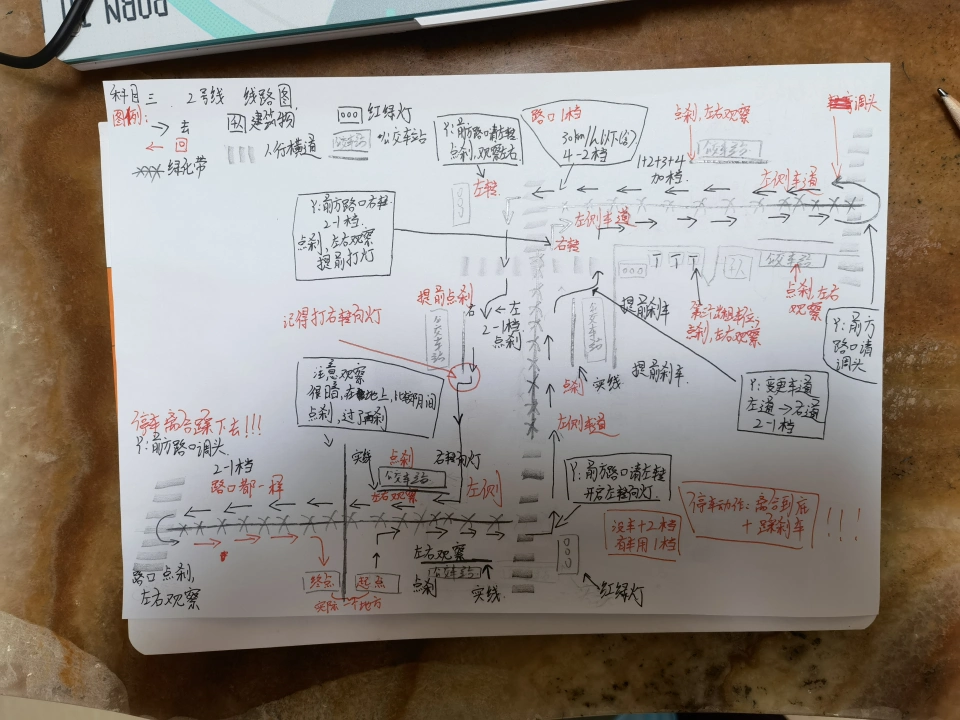 科目三 2号线 线路图
图例:
去
回
绿化带
建筑物
人行横道
红绿灯
公交车站
Y:前方路口请左转
点刹,观察左右
左转
路口1档
30km/h(以下(含))
4-2档
点刹,左右观察
公交车站
1+2+3+4
加档
左侧车道
调头
Y:前方路口右转
2-1档
点刹,左右观察
提前打灯
左侧车道
右转
公交车站
点刹,左右
观察
Y:前方
路口请
调头
提前点刹
右
左
2-1档
点刹
公交车站
记得打右转向灯
公交车站
提前刹车
点刹,左右观察
提前刹车
点刹
实线
左侧车道
Y:变更车道
左道→右道
2-1档
注意观察
点刹,过了再刹
停车离合踩下去!!!
Y:前方路口调头
2-1档
路口都一样
实线
点刹
公交车站
左右观察
右转向灯
左侧
Y:前方路口请左转
开启左转向灯
没车+2档
有车用1档
停车动作:离合到底
+踩刹车
!!!
路口点刹,
左右观察
终点
起点
实际一个地方
左右观察
公交车站
点刹
实线
红绿灯